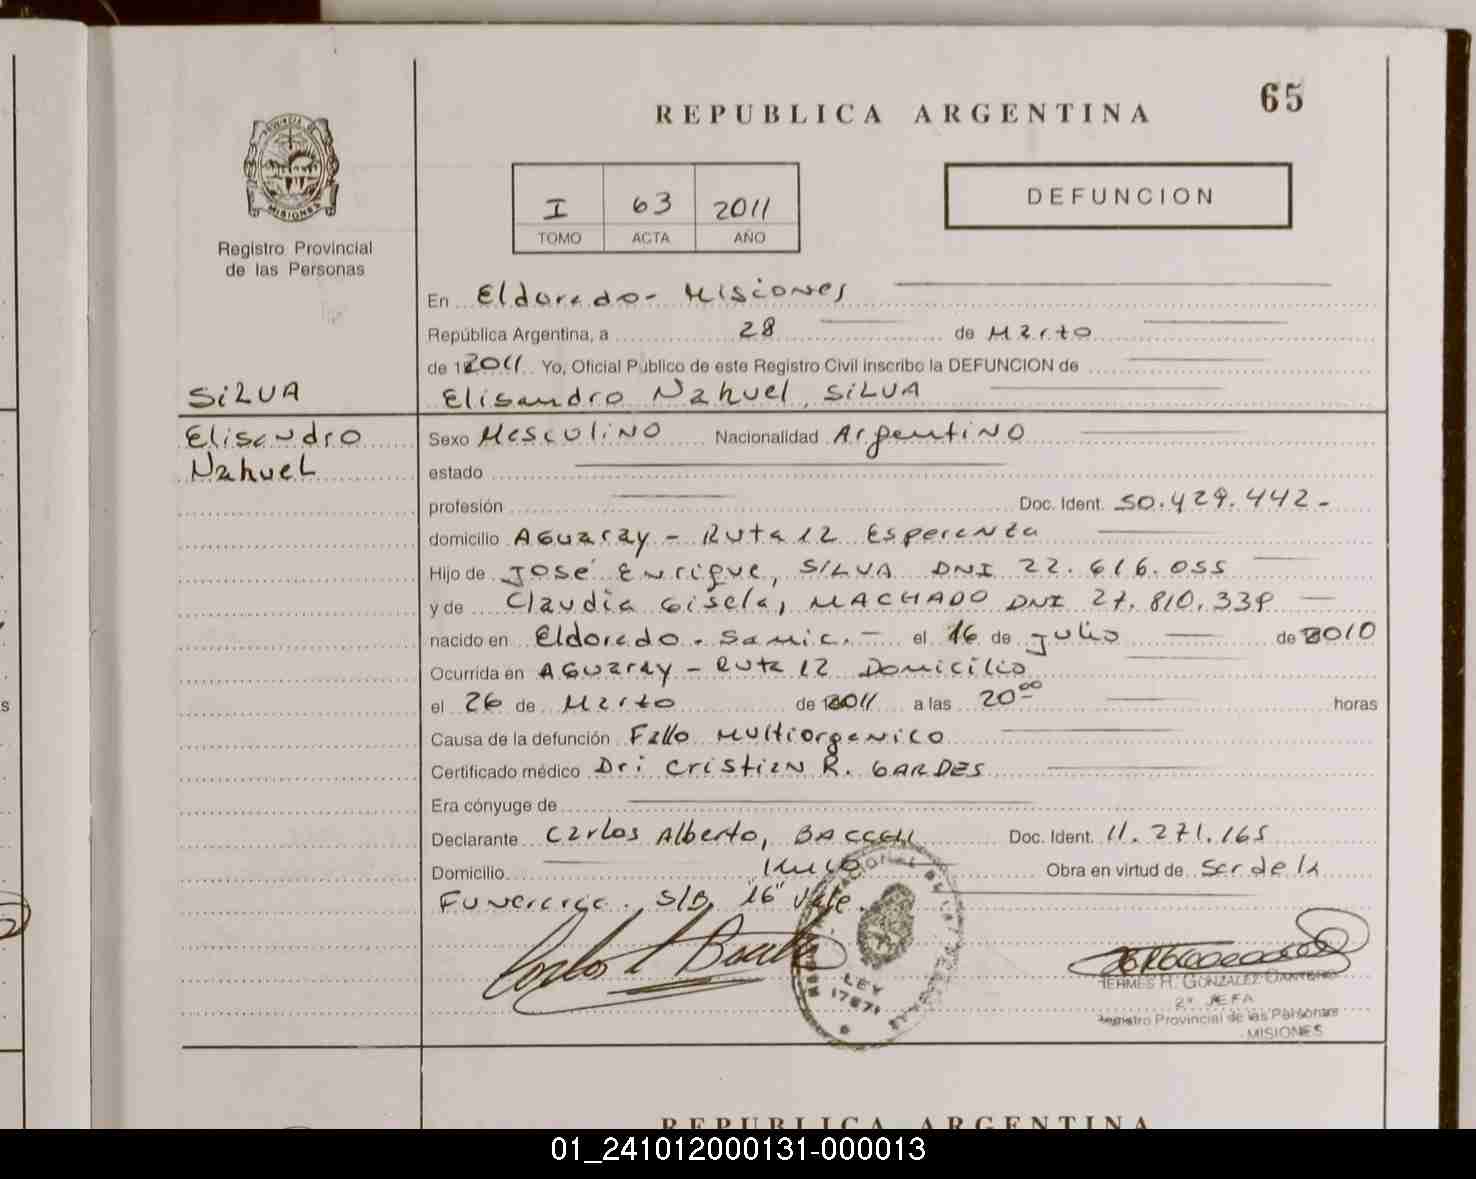 65
REPUBLICA ARGENTINA
PROVINCIA DE
MISIONES
Registro Provincial
de las Personas
I 63 2011
TOMO ACTA AÑO
DEFUNCION
En Eldorado - Misiones
República Argentina, a 28 de Marzo
de 2011 Yo, Oficial Público de este Registro Civil inscribo la DEFUNCION de
SILVA Elisandro Nahuel, SILVA
Elisandro Sexo Masculino Nacionalidad Argentino
Nahuel estado
profesión Doc. Ident. 50.429.442-
domicilio Aguaray - Ruta 12 Esperanza
Hijo de José Enrique, SILVA DNI 22.616.055
y de Claudia Gisela, MACHADO DNI 27.810.339
nacido en Eldorado. Samic. - el 16 de Julio de 2010
Ocurrida en Aguaray - Ruta 12 Domicilio
el 26 de Marzo de 2011 a las 20 00 horas
Causa de la defunción Fallo Multiorganico
Certificado médico Dr: Cristian R. GARDES
Era cónyuge de
Declarante Carlos Alberto, Doc. Ident. 11.271.165
Domicilio Obra en virtud de Ser de la
Funeraria. S/B "16" Vale.
LEY
17671
HERMES R. GONZALEZ
2º JEFA
Registro Provincial de las Personas
MISIONES
REPUBLICA ARGENTINA
01_241012000131-000013